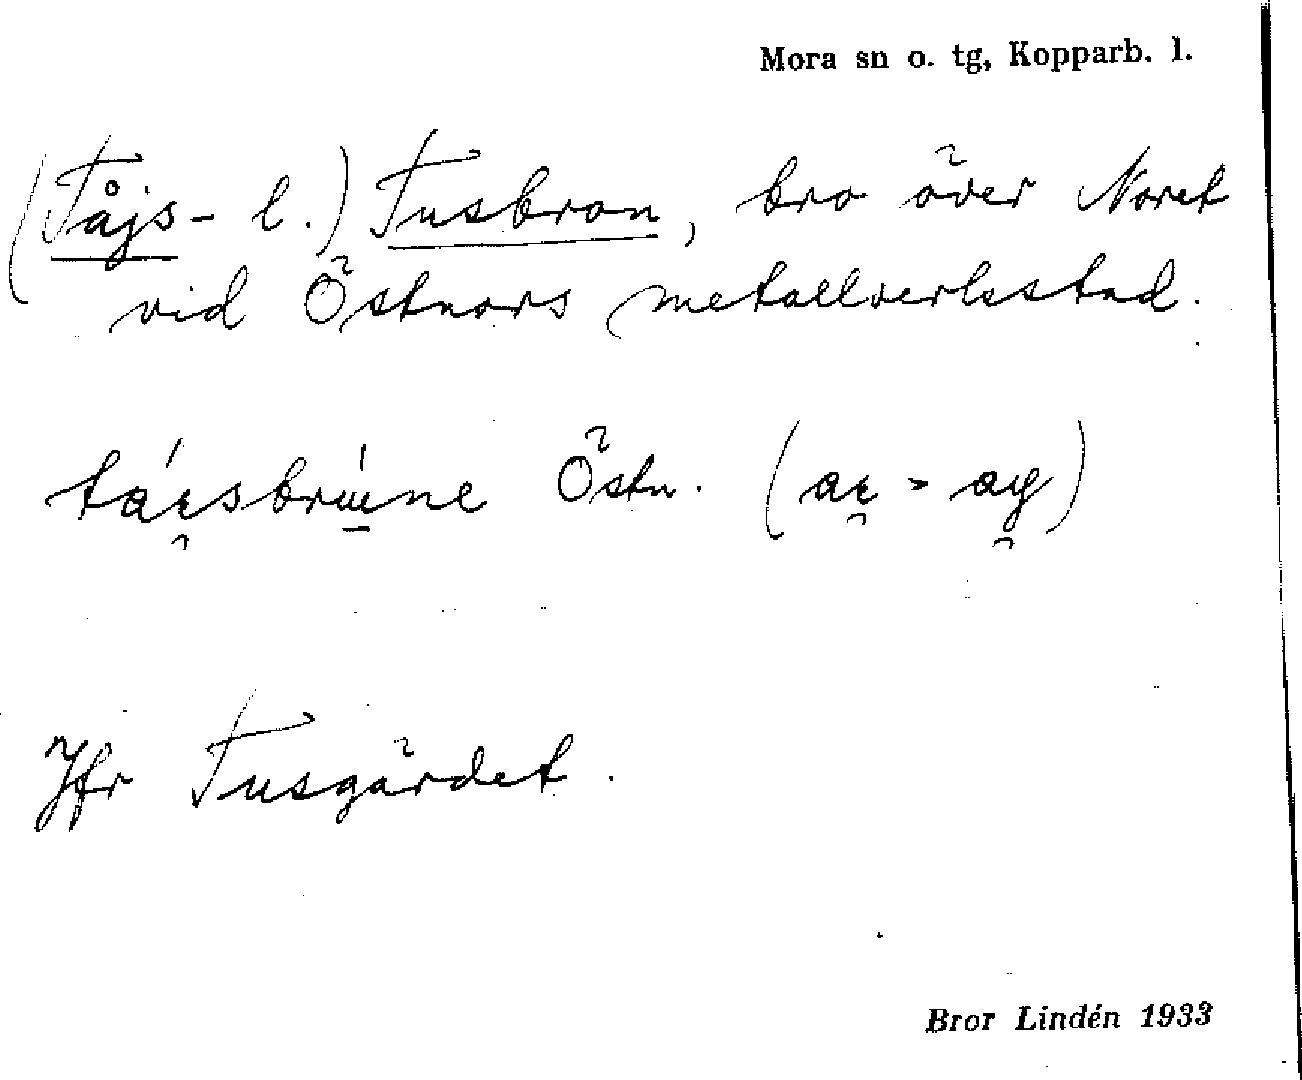 Mora sn o. tg, Kopparb. l.
(Tåjs- l.) Tusbron, bro över Noret
vid Östnors metallverkstad.
Östn.
Jfr Tusgärdet.
Bror Lindén 1933